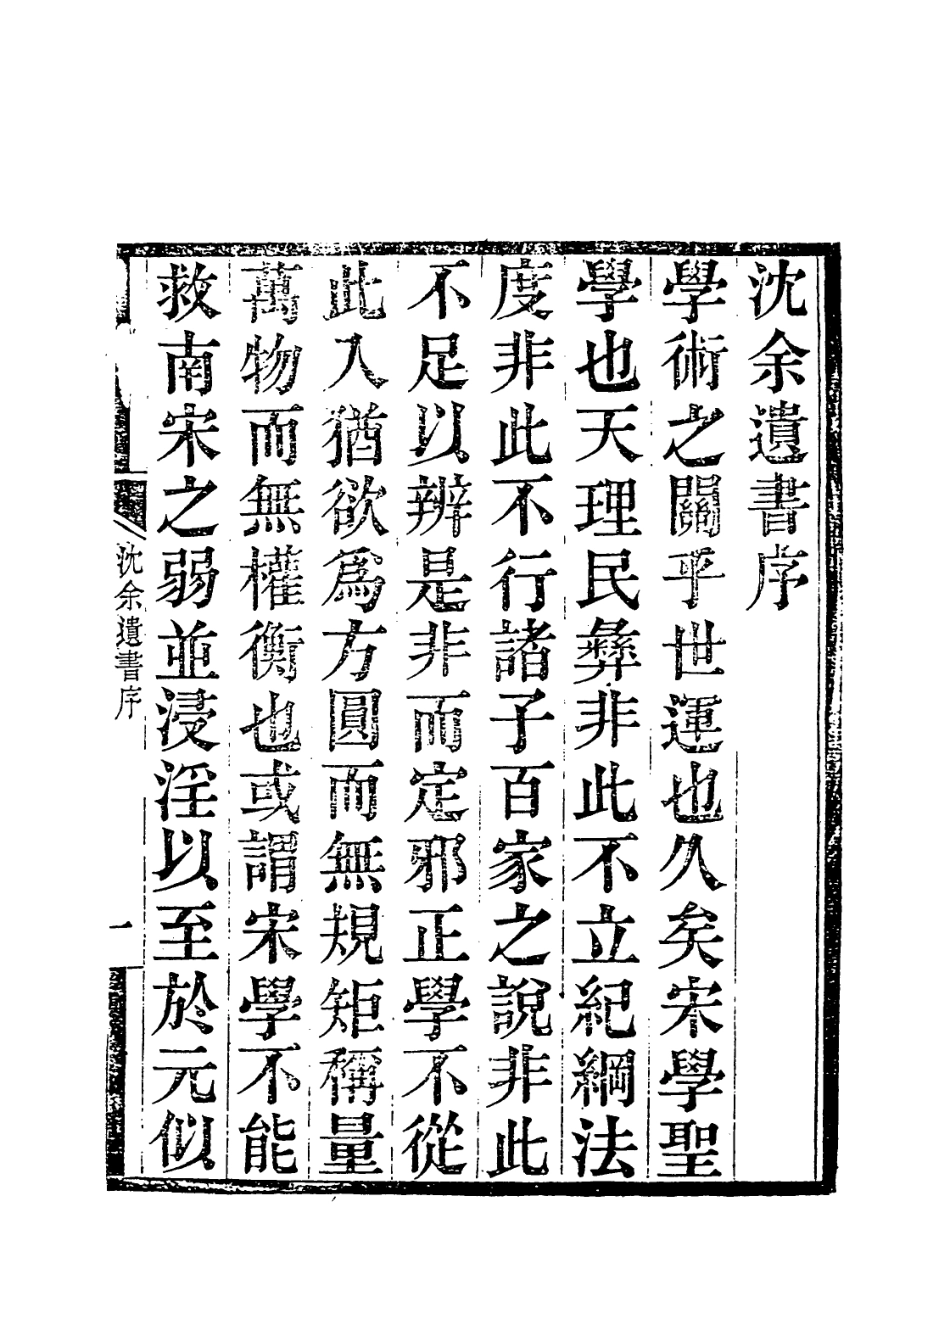 沈余遺書序
學術之關乎世運也久矣宋學聖
學也天理民彝非此不立紀綱法
度非此不行諸子百家之說非此
不足以辨是非而定邪正學不從
此入猶欲爲方圓而無規矩稱量
萬物而無權衡也或謂宋學不能
救南宋之弱並浸淫以至於元似
沈余遺書序
一